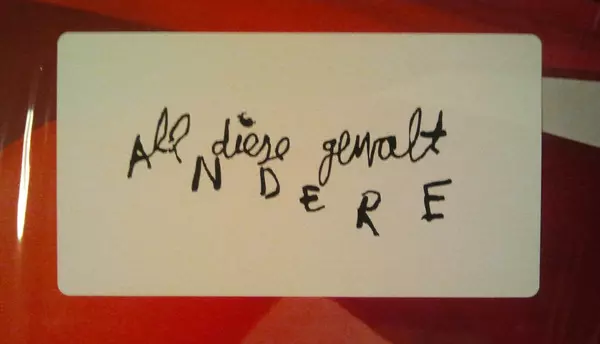 All diese gewalt
ANDERE